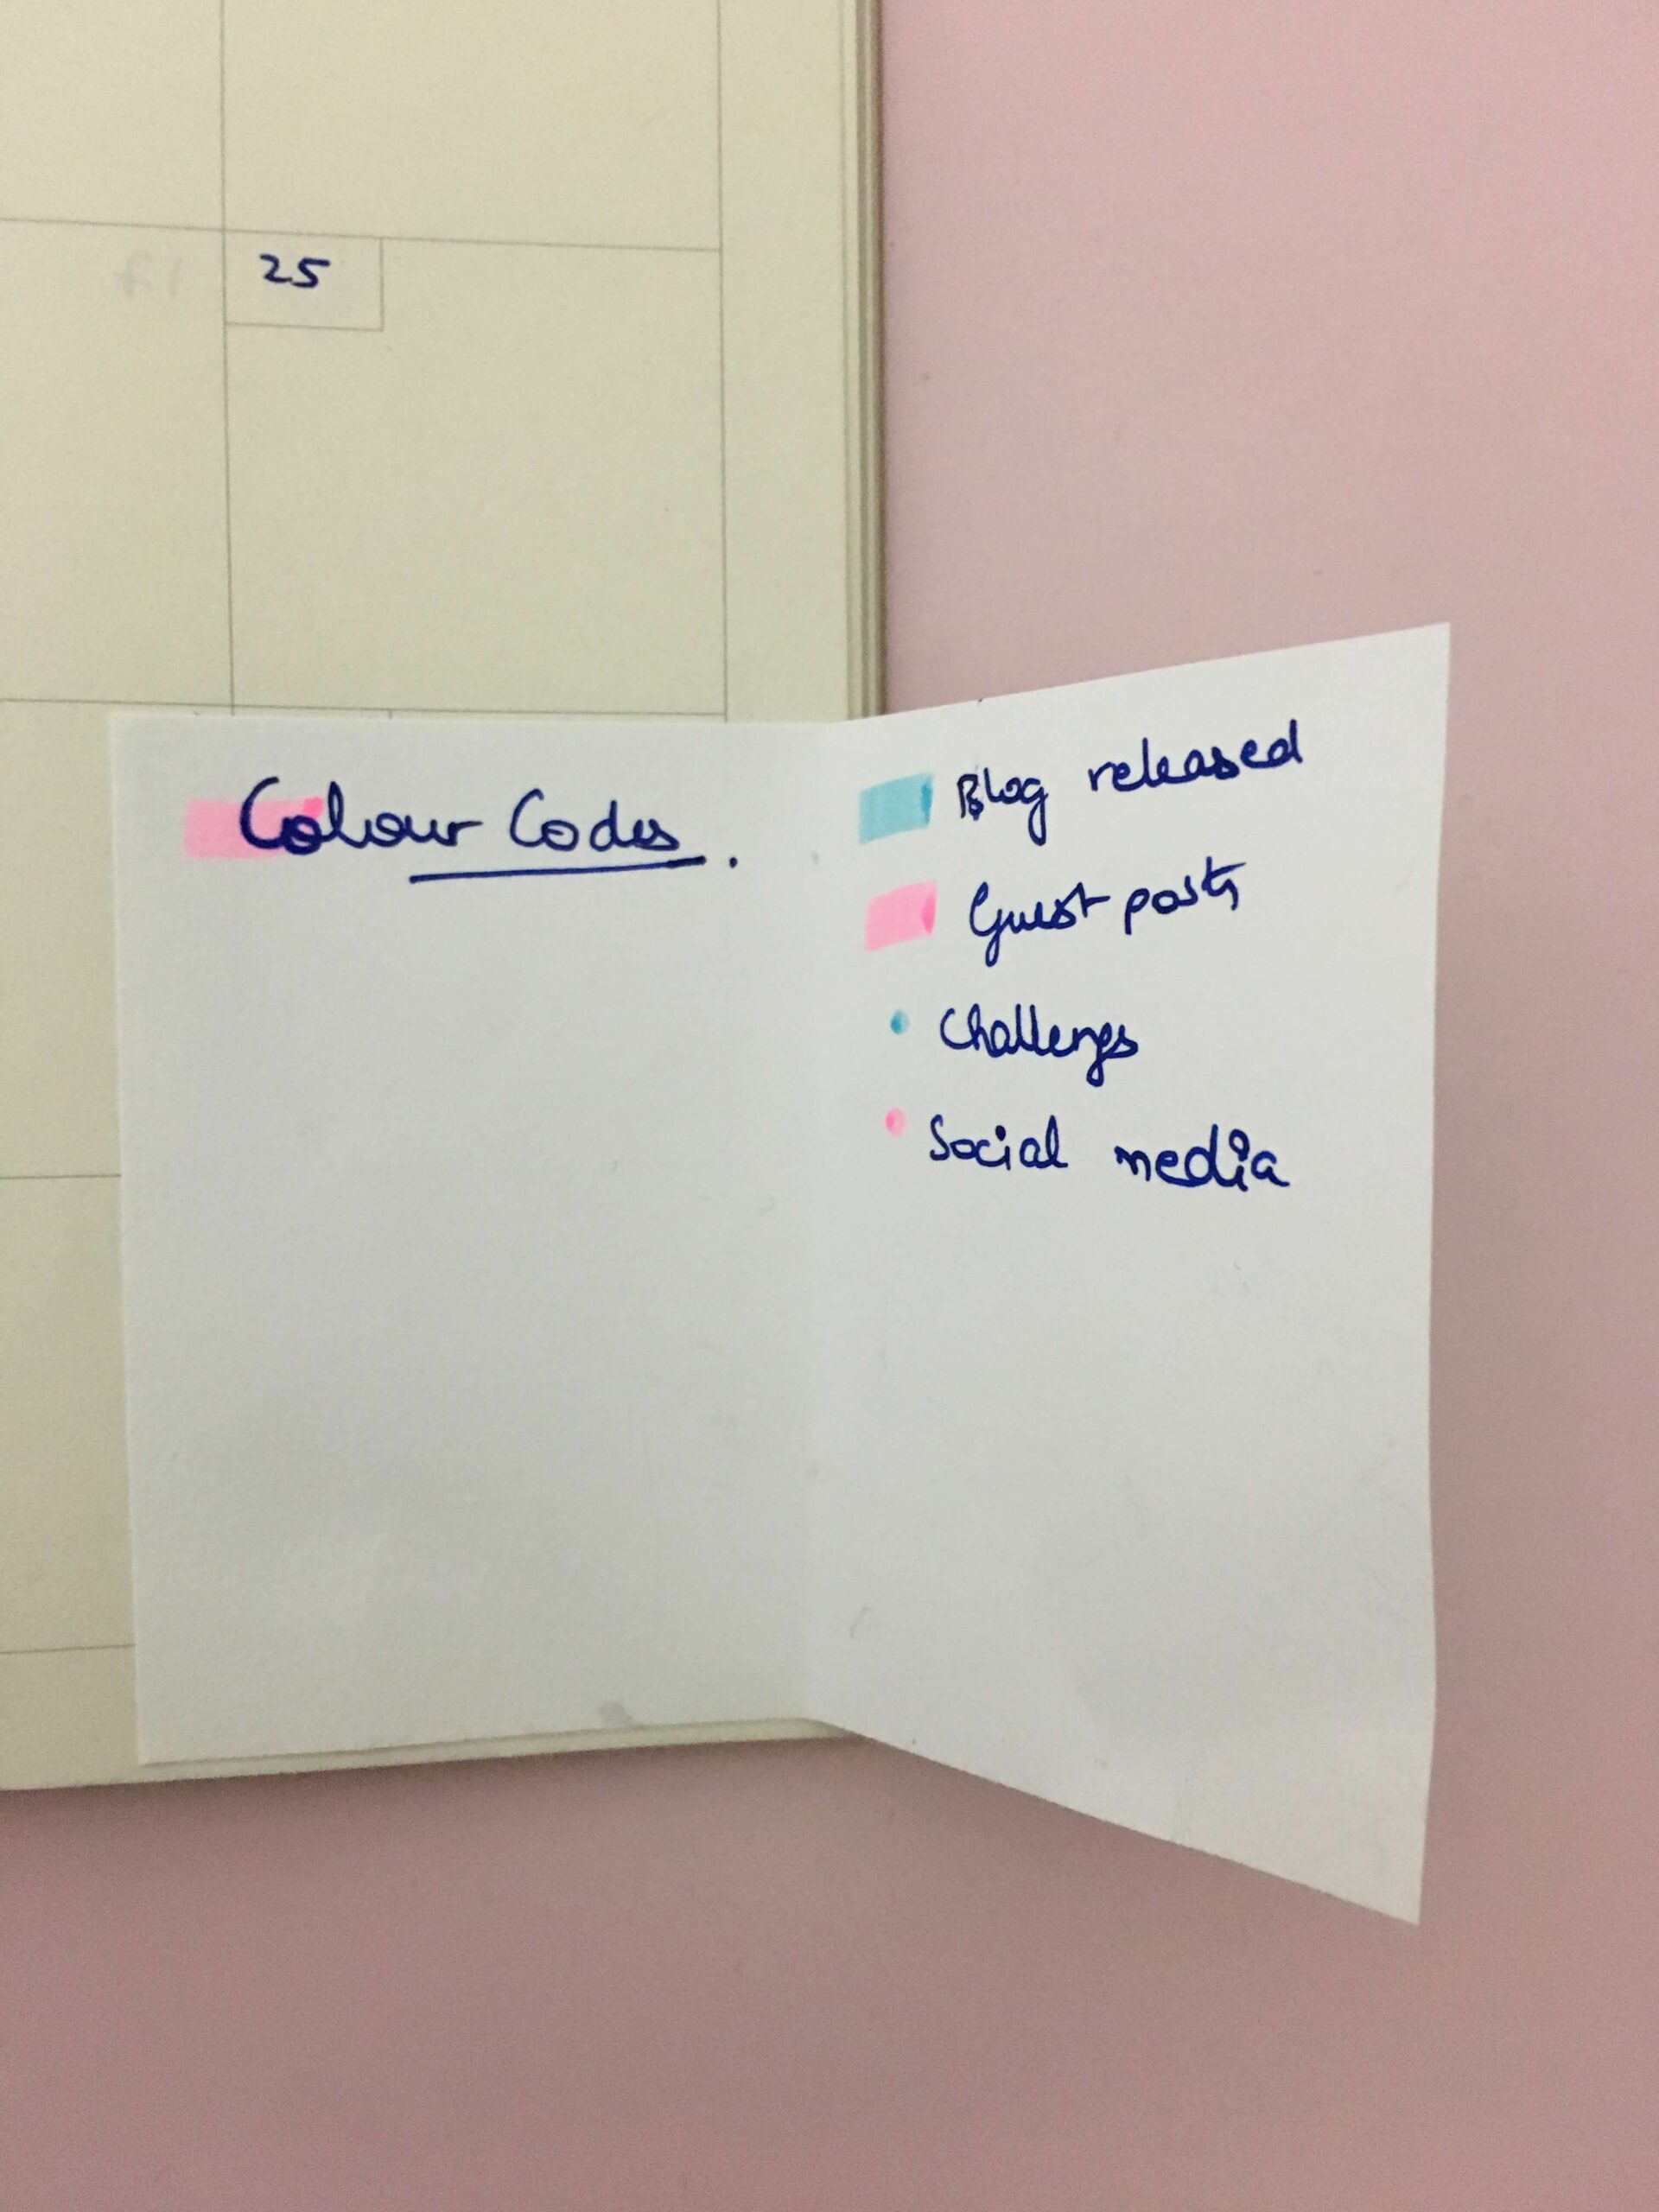 25
Colour Codes.
Blog released
Guest posts
Challenges
Social media